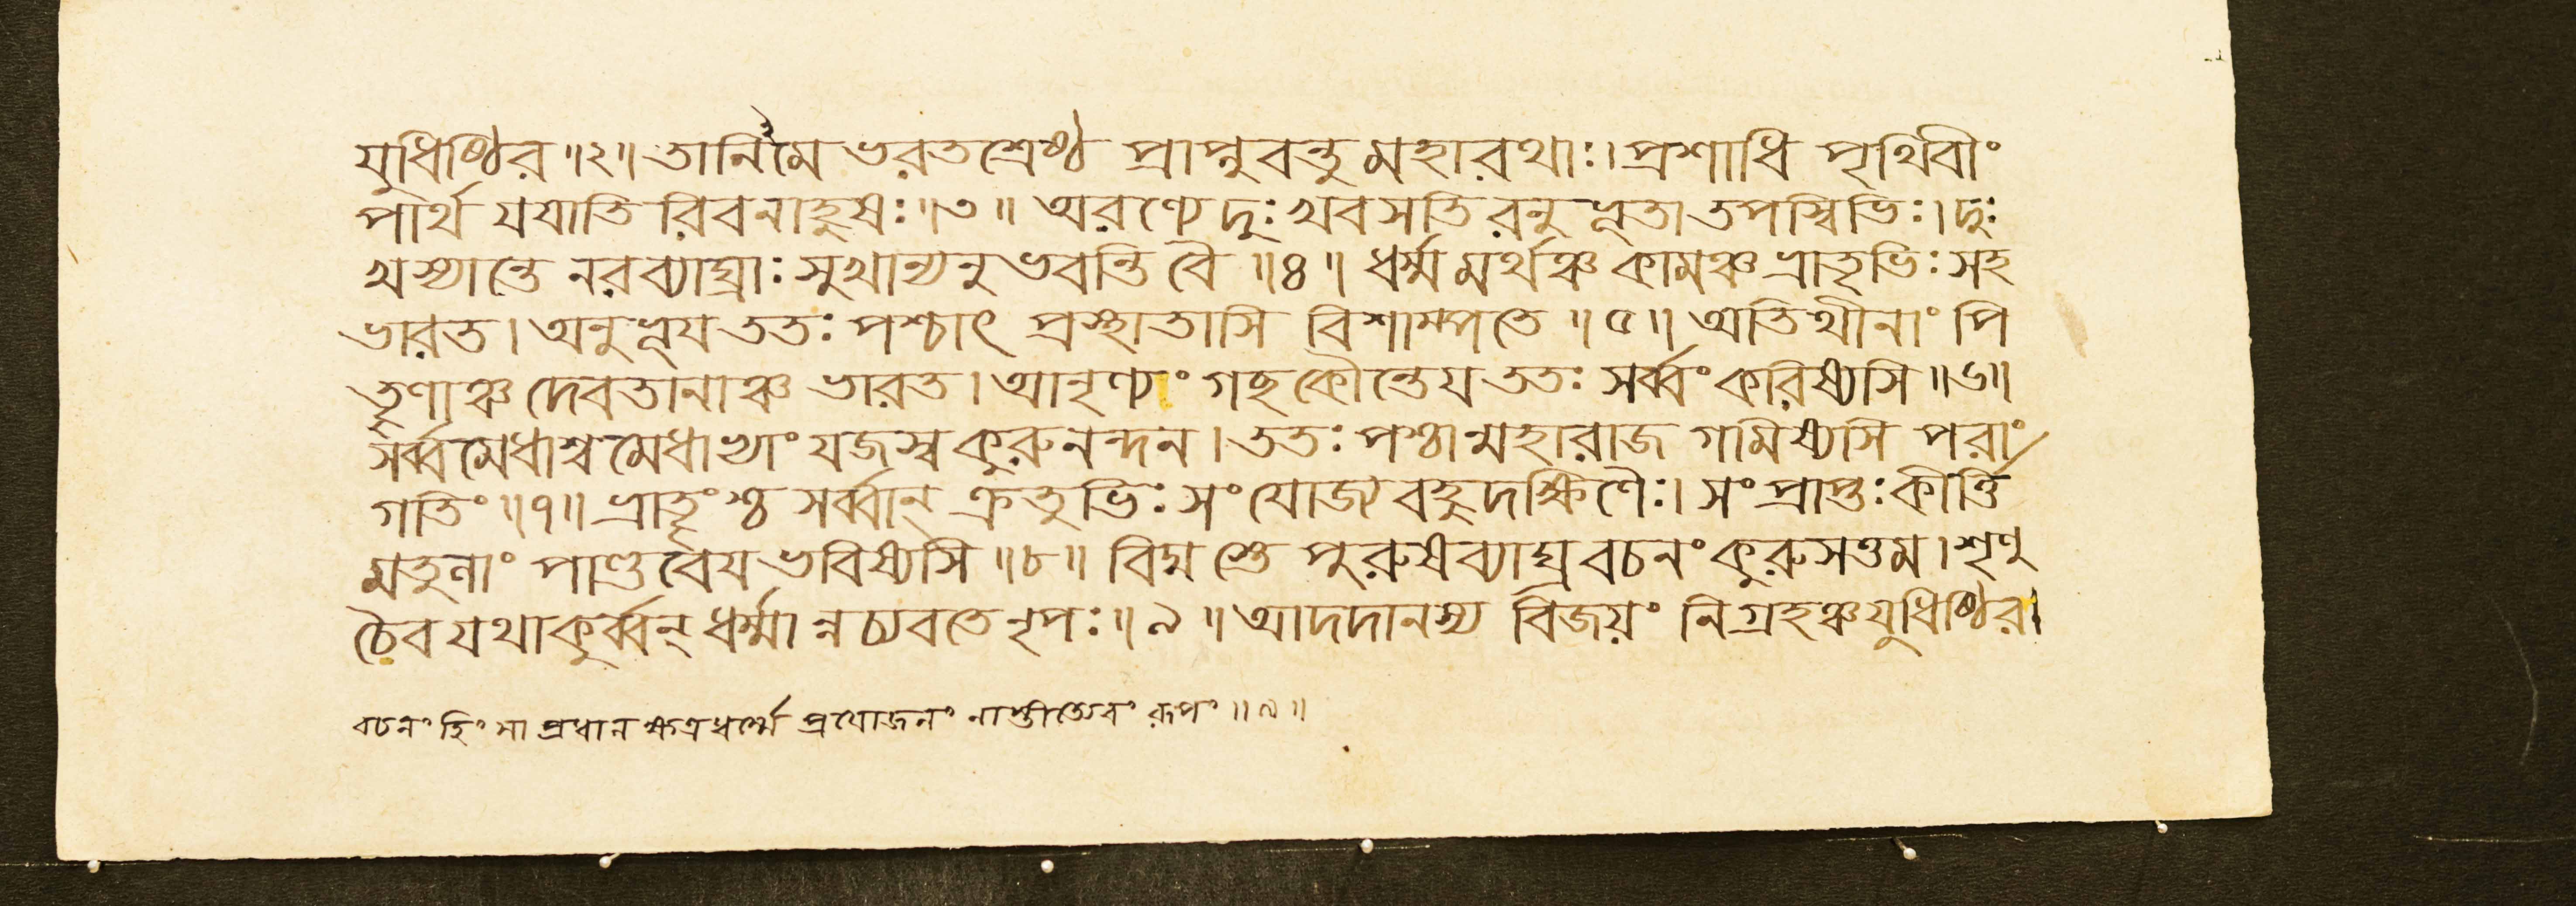 যুধিষ্ঠির ॥২॥ তানিমে ভরতশ্রেষ্ঠ প্রাপ্নুবন্তু মহারথাঃ। প্রশাধি পৃথিবীং
পার্থ যযাতি রিবনাহুষঃ ॥৩॥ অরণ্যে দুঃখবসতি রনুভূতা তপস্বিভিঃ। দুঃ
খস্যান্তে নরব্যাঘ্রাঃ সুখান্যনুভবন্তি বৈ ॥৪॥ ধর্ম্মমর্থঞ্চ কামঞ্চ ভ্রাতৃভিঃ সহ
ভারত। অনুভূয ততঃ পশ্চাৎ প্রস্থাতাসি বিশাম্পতে ॥৫॥ অতিথীনাং পি
তৄণাঞ্চ দেবতানাঞ্চ ভারত। আনৃণ্যং গছ কৌন্তেয ততঃ সর্ব্বং করিষ্যসি ॥৬॥
সর্ব্বমেধাশ্বমেধাখ্যাং যজস্ব কুরুনন্দন। ততঃ পশ্চান্মহারাজ গমিষ্যসি পরাং
গতিং ॥৭॥ ভ্রাতৄংশ্চ সর্ব্বান্ ক্রতুভিঃ সংযোজ্য বহুদক্ষিণৈঃ। সংপ্রাপ্তঃ কীর্ত্তি
মতুলাং পাণ্ডবেয ভবিষ্যসি ॥৮॥ বিদ্মস্তে পুরুষব্যাঘ্র বচনং কুরুসত্তম। শৃণু
চৈব যথা কুর্ব্বন্ ধর্ম্মান্নচ্যবতে নৃপঃ ॥৯॥ আদদানস্য বিজয়ং নিগ্রহঞ্চ যুধিষ্ঠির।
বচনং হিংসা প্রধান ক্ষত্রধর্ম্মে প্রযোজনং নাস্তীত্যেবং রূপং ॥৯॥